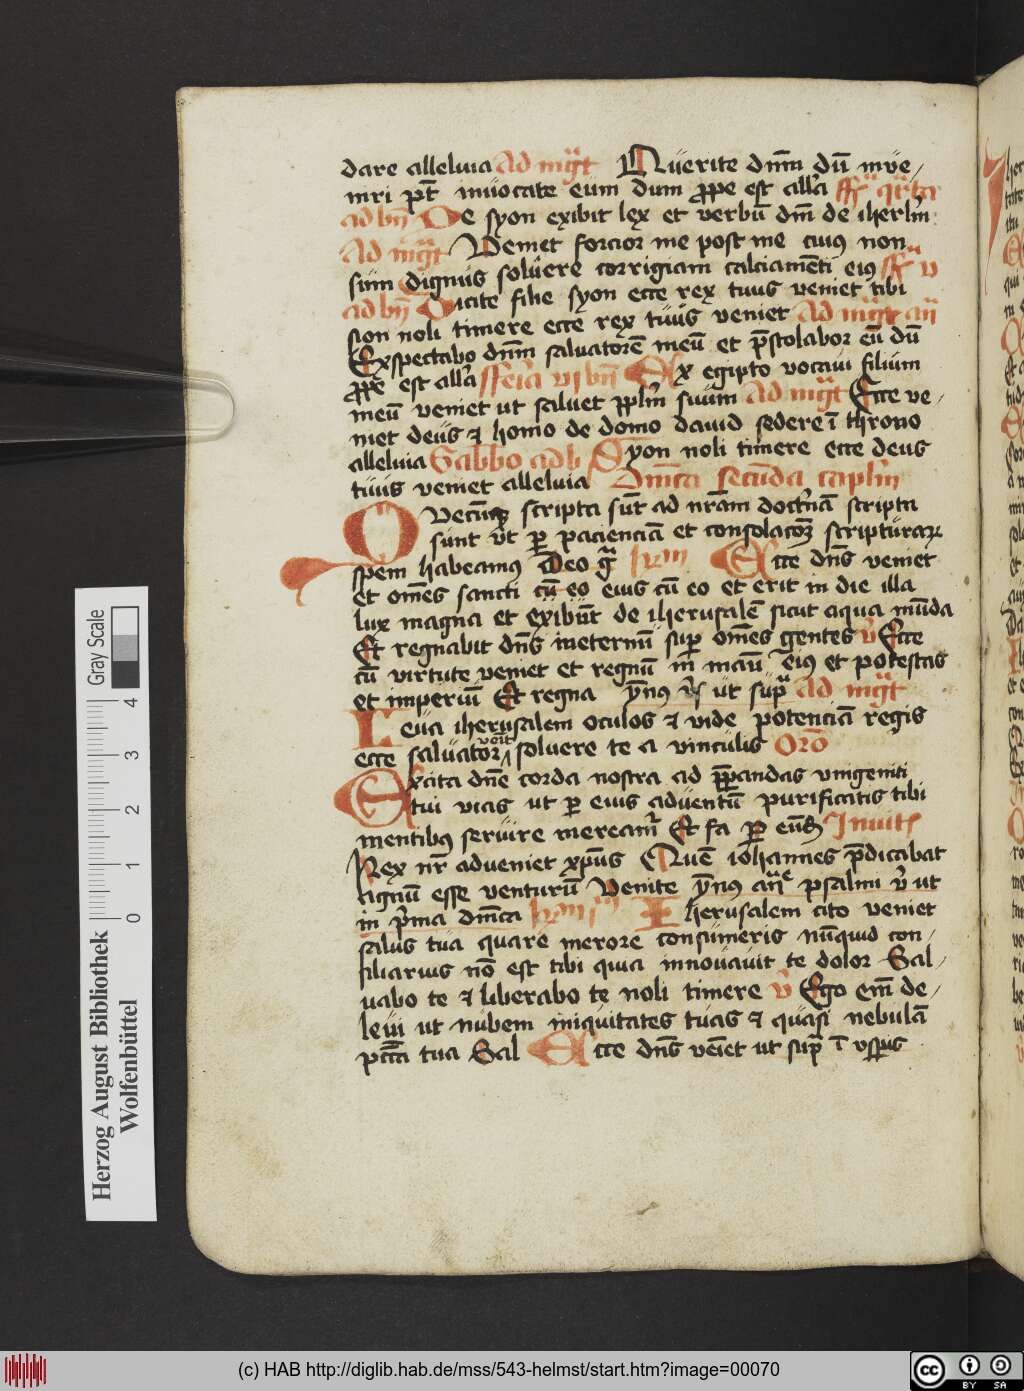 dare alleluia Ad mgͣt Querite dnm̄ dū inue/
niri pt̄ inuocate eum dum ꝓpe est alla ffͥa qͥrta
ad bn̄ De syon exibit lex et verbū dnī de iherlm̄
Ad mgͣt Veniet forcior me post me cuiꝰ non
sum dignus soluere corrigiam calciamēti eiꝰ ffͥa v
ad bn̄ Dicite filie syon ecce rex tuus veniet tibi
sion noli timere ecce rex tuus veniet Ad mgͣt an̄
Exspectabo dnm̄ saluatorē meū et p̄stolabor eū dū
ꝓpe est alla fferia vi bn̄ Ex egipto vocaui filium
meū veniet ut saluet pplm̄ suum Ad mgͣt Ecce ve/
niet deus ⁊ homo de domo dauid sedere ī throno
alleluia Sabbo ad b Syon noli timere ecce deus
tuus veniet alleluia Dnīca secūda caplm̄
Quecūqꝫ scripta sūt ad nrām doctͥnā scripta
sunt vt ꝑ pacienciā et consolacōꝫ scripturarꝫ
spem habeamꝰ Deo gͣ Ecce dn̄s veniet
et om̄es sancti cū eo eius cū eo et erit in die illa
lux magna et exibūt de iherusalē sicut aqua mūda
Et regnabit dn̄s ineternū suꝑ om̄es gentes v̄ Ecce
cū virtute veniet et regnū in manū eiꝰ et potestas
et imperiū Et regna ympnus ut supͣ Ad mgͣt
Leua iherusalem oculos ⁊ vide potenciā regis
ecce saluator venit soluere te a vinculis Oro
Excita dn̄e corda nostra ad p̄parandas vnigeniti
tui vias ut ꝑ eius aduentū purificatis tibi
mentibꝰ seruire mereamͬ Et fa ꝑ eūdē Inuit
Rex nr̄ adueniet xp̄us Quē iohannes p̄dicabat
agnū esse venturū Venite ympnus an̄e psalmi v̄ ut
in pͥma dnīca Iherusalem cito veniet
salus tua quare merore consumeris nūquid con/
siliarius nō est tibi quia innouauit te dolor Sal/
uabo te ⁊ liberabo te noli timere v̄ Ego em̄ de/
leui ut nubem iniquitates tuas ⁊ quasi nebulā
pctā tua Sal Ecce dn̄s veīet ut supͣ ī vesperis
Gray Scale
4
3
2
1
0
Herzog August Bibliothek
Wolfenbüttel
(c) HAB http://diglib.hab.de/mss/543-helmst/start.htm?image=00070
cc
BY SA